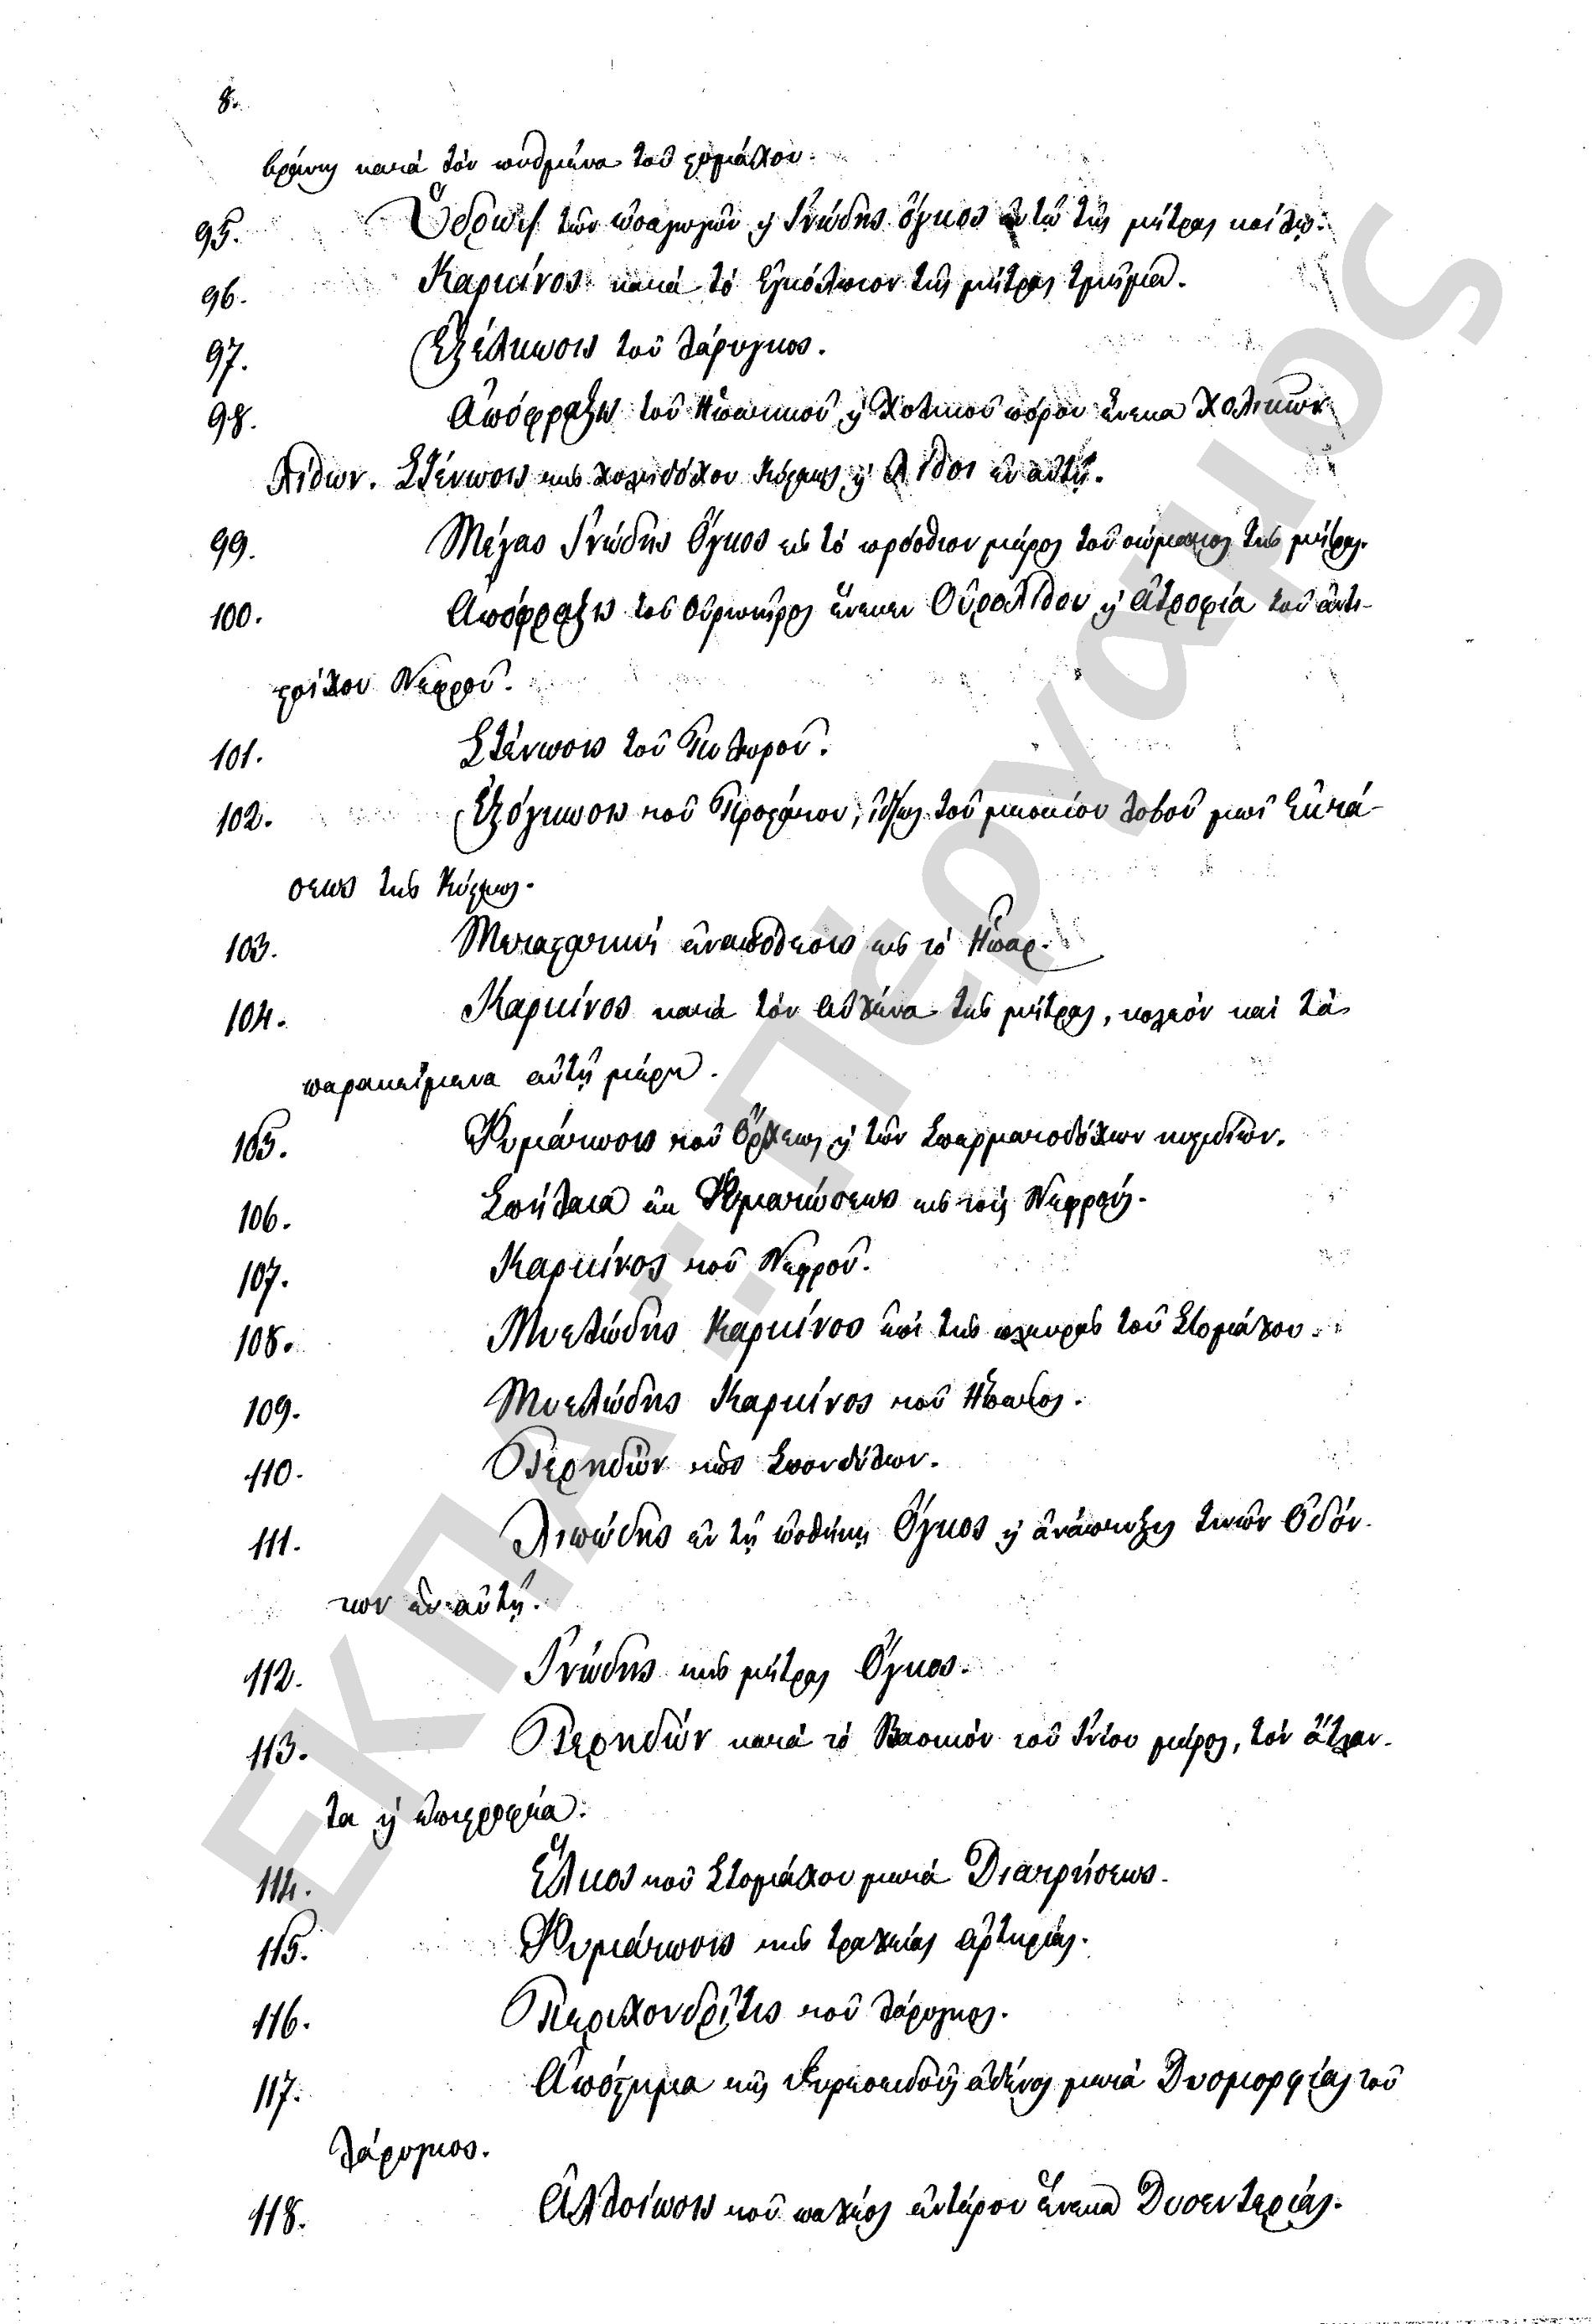 8.
βράνης κατὰ τὸν πυθμένα τοῦ στομάχου.
95. Ὕδρωψ τῶν ὠαγωγῶν ἢ Ἰνώδης ὄγκος ἐν τῷ τῆς μήτρας κοίλῳ.
96. Καρκίνος κατὰ τὸ ἐγκόλπιον τῆς μήτρας τμῆμα.
97. Ἐξέλκωσις τοῦ λάρυγγος.
98. Ἀπόφραξις τοῦ Ἡπατικοῦ ἢ Χολικοῦ πόρου ἕνεκα Χολικῶν
Λίθων. Στένωσις τῆς χοληδόχου Κύστεως ἢ Λίθοι ἐν αὐτῇ.
99. Μέγας Ἰνώδης Ὄγκος εἰς τὸ πρόσθιον μέρος τοῦ σώματος τῆς μήτρας.
100. Ἀπόφραξις τοῦ Οὐρητῆρος ἕνεκεν Οὐρολίθου ἢ Ἀτροφία τοῦ ἀντι-
στοίχου Νεφροῦ.
101. Στένωσις τοῦ Πυλωροῦ.
102. Ἐξόγκωσις τοῦ Προστάτου, ἰδίως τοῦ μεσαίου λοβοῦ μετ' Ἐκτά-
σεως τῆς Κύστεως.
103. Μεταστατικὴ ἐναπόθεσις εἰς τὸ Ἧπαρ.
104. Καρκίνος κατὰ τὸν Αὐχένα τῆς μήτρας, κολεὸν καὶ τὰ
παρακείμενα αὐτῇ μέρη.
105. Φυμάτωσις τοῦ Ὄρχεως ἢ τῶν Σπερματοδόχων κυστιδίων.
106. Σπήλαια ἐκ Φυματώσεως εἰς τοὺς Νεφρούς.
107. Καρκίνος τοῦ Νεφροῦ.
108. Μυελώδης Καρκίνος ἐπὶ τῆς πλευρᾶς τοῦ Στομάχου.
109. Μυελώδης Καρκίνος τοῦ Ἥπατος.
110. Τερηδὼν τῶν Σπονδύλων.
111. Λιπώδης ἐν τῇ ὠοθήκῃ Ὄγκος ἢ ἀνάπτυξις τινῶν Ὀδόν-
των ἐν αὐτῇ.
112. Ἰνώδης τῆς μήτρας Ὄγκος.
113. Τερηδὼν κατὰ τὸ Βασικὸν τοῦ Ἰνίου μέρος, τὸν ἄτλαν-
τα ἢ ἐπιστροφέα.
114. Ἕλκος τοῦ Στομάχου μετὰ Διατρήσεως.
115. Φυμάτωσις τῆς τραχείας ἀρτηρίας.
116. Περιχονδρῖτις τοῦ λάρυγγος.
117. Ἀπόστημα τῆς Θυρεοειδοῦς ἀδένος μετὰ Δυσμορφίας τοῦ
λάρυγγος.
118. Ἀλλοίωσις τοῦ παχέος ἐντέρου ἕνεκα Δυσεντερίας.
ΕΚΠΑ:Πέργαμος